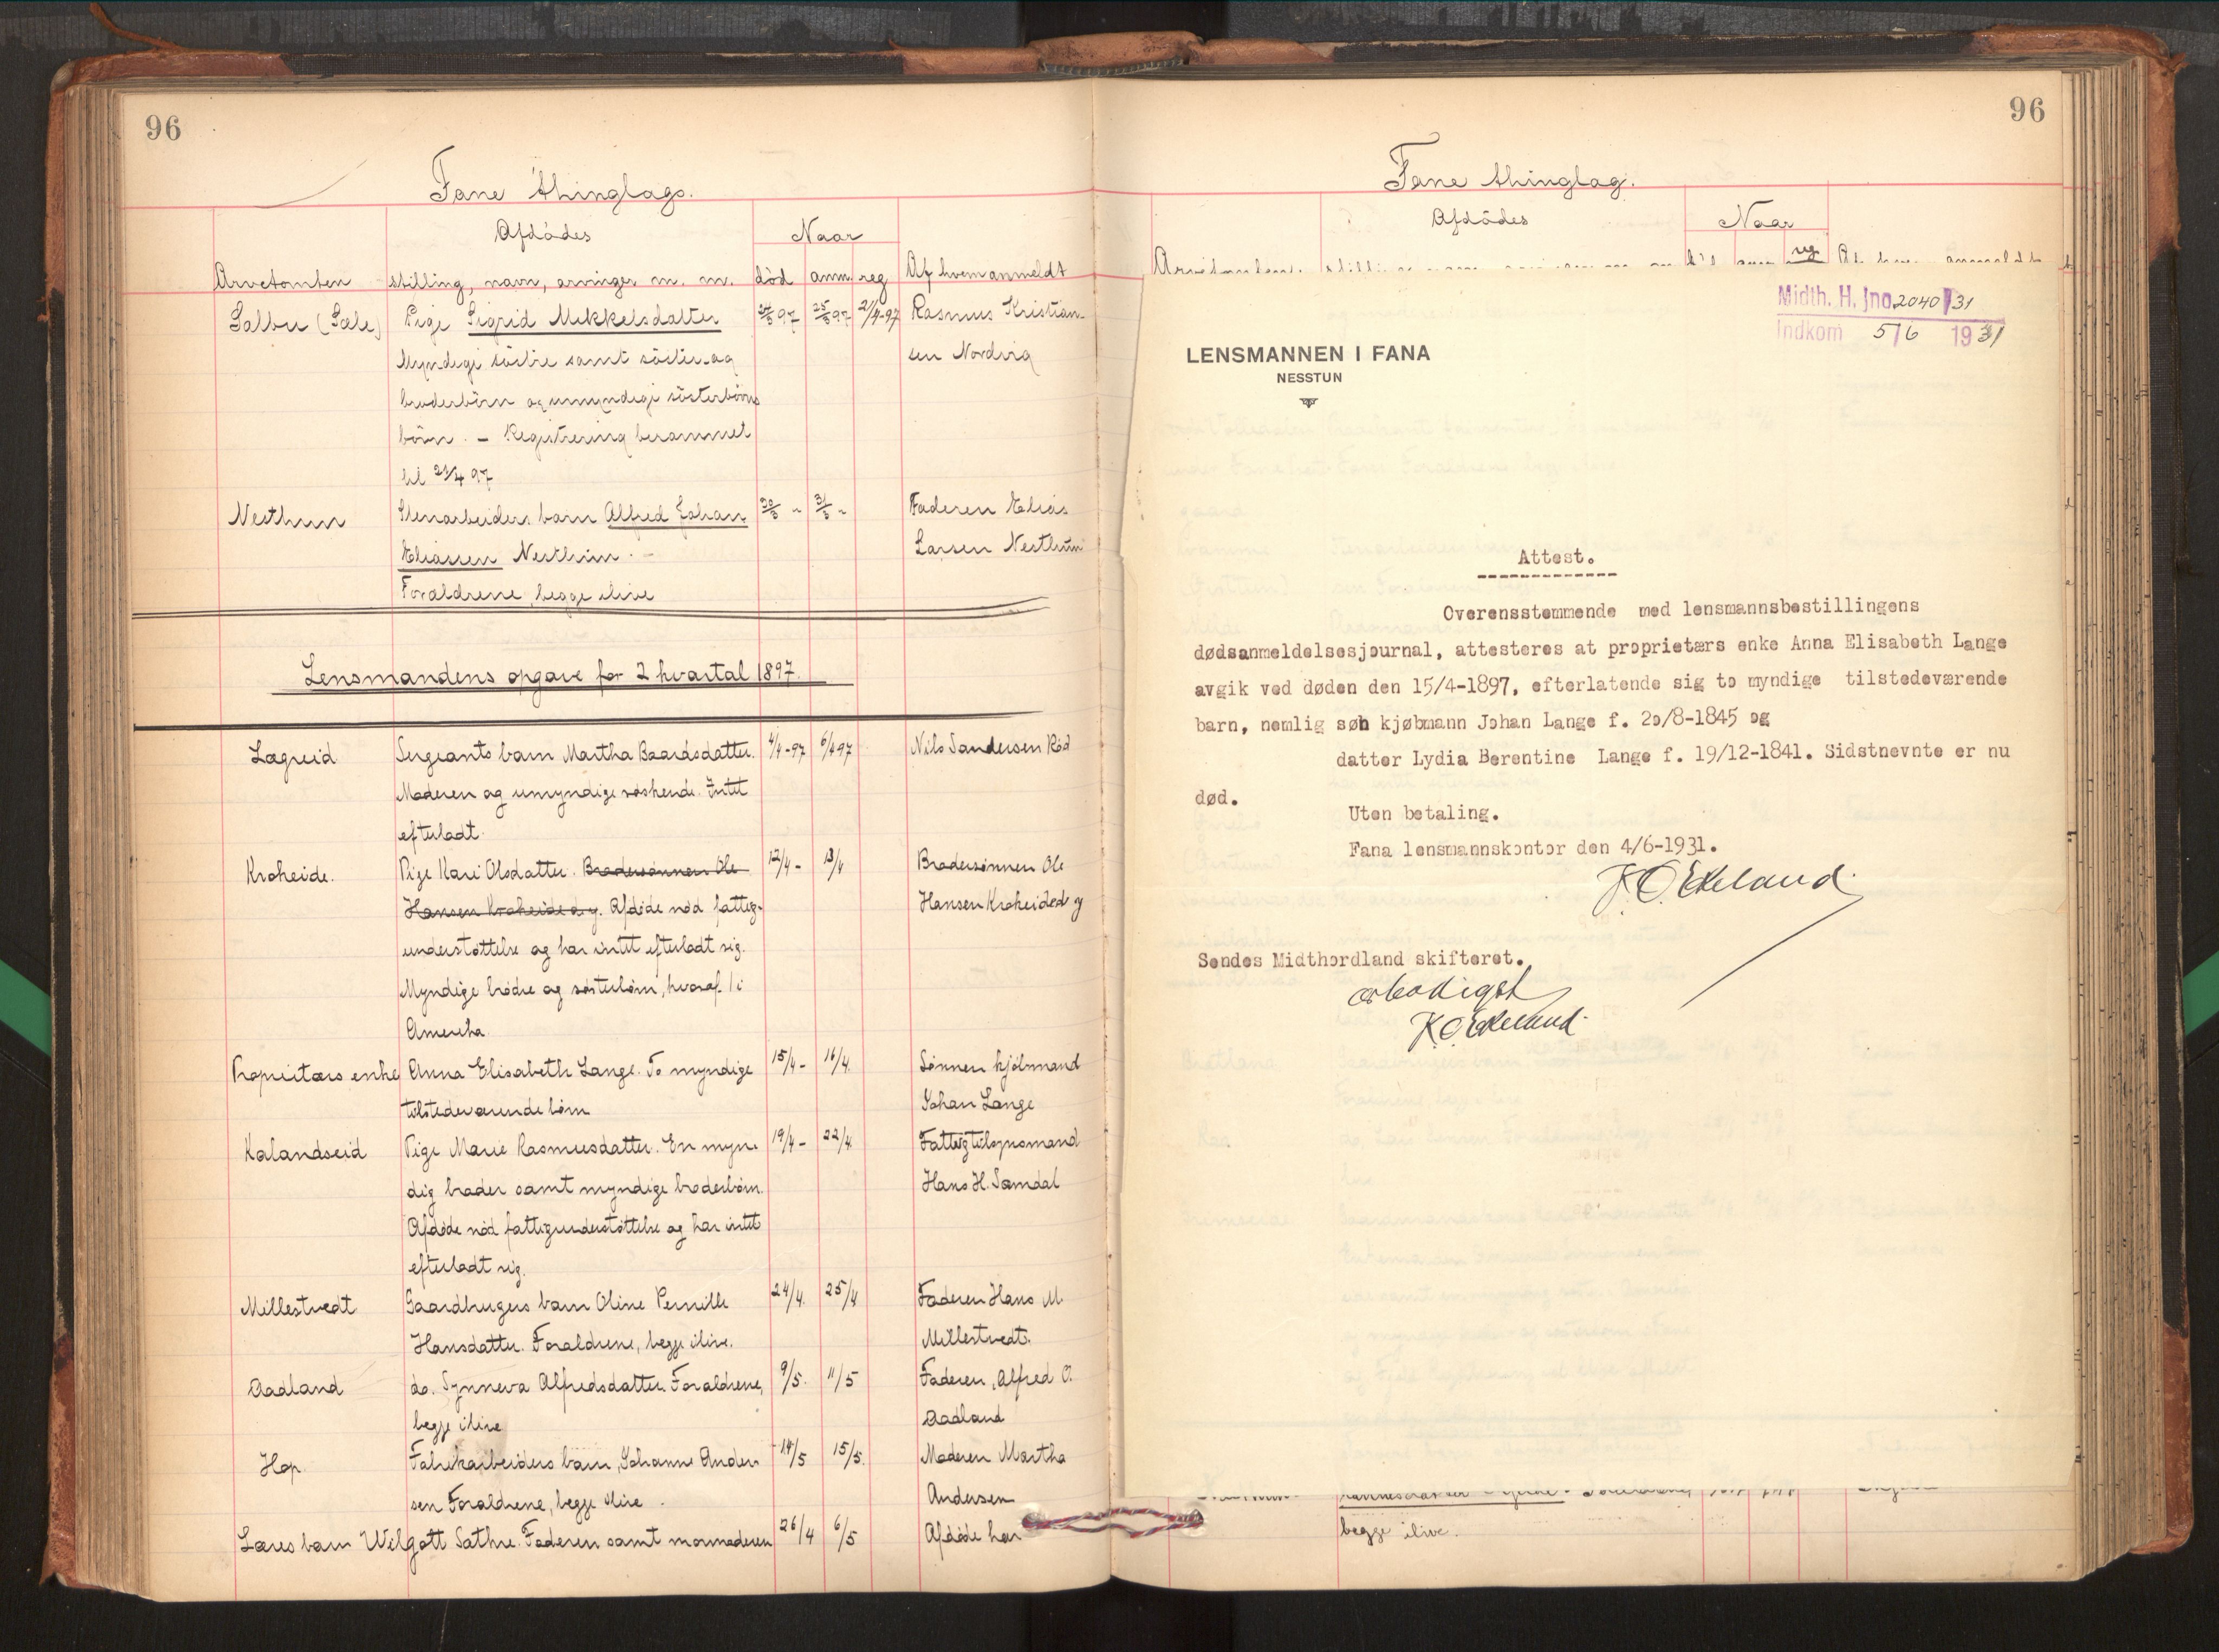 96
Fane thinglags.
Afdødes
Naar
Arvetomten
stilling, navn, arvinger m. m.
död
anm
reg
Af hvem anmeldt
Salbu (Sæle)
Pige Sigrid Mikkelsdatter
97
25/3 97
21/4-97
Rasmus Kristian-
Myndige söstre samt söster og
sen Nordvig
broderbörn og umyndige sösterbörns
börn. - Registrering berammet
til 21/4 97
Nesthun
Stenarbeiders barn Alfred Johan
30/3 "
31/3 "
Faderen Elias
Eliassen Nesthun. -
Larsen Nesthun
Forældrene, begge ilive
Lensmandens opgave for 2 kvartal 1897.
Lagreid
Sergeants barn Martha Baardsdatter.
4/4-97
6/4 97
Nils Sandersen Röd
Moderen og umyndige søskende. Intet
efterladt.
Kroheide.
Pige Kari Olsdatter. Brodersønnen Ole
12/4 -
13/4
Brodersønnen Ole
Hansen Kroheided. y. Afdøde nød fattig-
Hansen Kroheided y
understøttelse og har intet efterladt sig.
Myndige brødre og søsterbørn, hvoraf 1 i
Amerika.
Proprietærs enke
Anna Elisabeth Lange. To myndige
15/4 -
16/4.
Sønnen kjøbmand
tilstedeværende børn
Johan Lange
Kalandseid
Pige Marie Rasmusdatter. En myn-
19/4 -
22/4
Fattigtilsynsmand
dig broder samt myndige broderbørn.
Hans H. Samdal
Afdøde nød fattigunderstøttelse og har intet
efterladt sig.
Millestvedt
Gaardbrugers barn Oline Pernille
24/4.
25/4
Faderen Hans M.
Hansdatter. Forældrene, begge ilive.
Millestvedt.
Aadland
do. Synneva Alfredsdatter. Forældrene,
9/5.
11/5
Faderen, Alfred O.
begge ilive
Aadland
Hop.
Fabrikarbeiders barn, Johanne Ander-
14/5
15/5.
Moderen Martha
sen Forældrene, begge ilive.
Andersen
Læres barn Wilgott Sathre. Faderen samt mormoderen
26/4
6/5
Afdøde har
96
Fane thinglag.
Afdødes
Naar
reg
Midth. H. Jno. 2040/31
Indkom 5/6 1931
LENSMANNEN I FANA
NESSTUN
Attest.
Overensstemmende med lensmannsbestillingens
dødsanmeldelsesjournal, attesteres at proprietærs enke Anna Elisabeth Lange
avgik ved døden den 15/4-1897, efterlatende sig to myndige tilstedeværende
barn, nemlig søn kjøbmann Johan Lange f. 2o/8-1845 og
datter Lydia Berentine Lange f. 19/12-1841. Sidstnevnte er nu
død.
Uten betaling.
Fana lensmannskontor den 4/6-1931.
K O Ekeland.
Sendes Midthordland skifteret.
ærbødigst
K O Ekeland.
begge ilive.